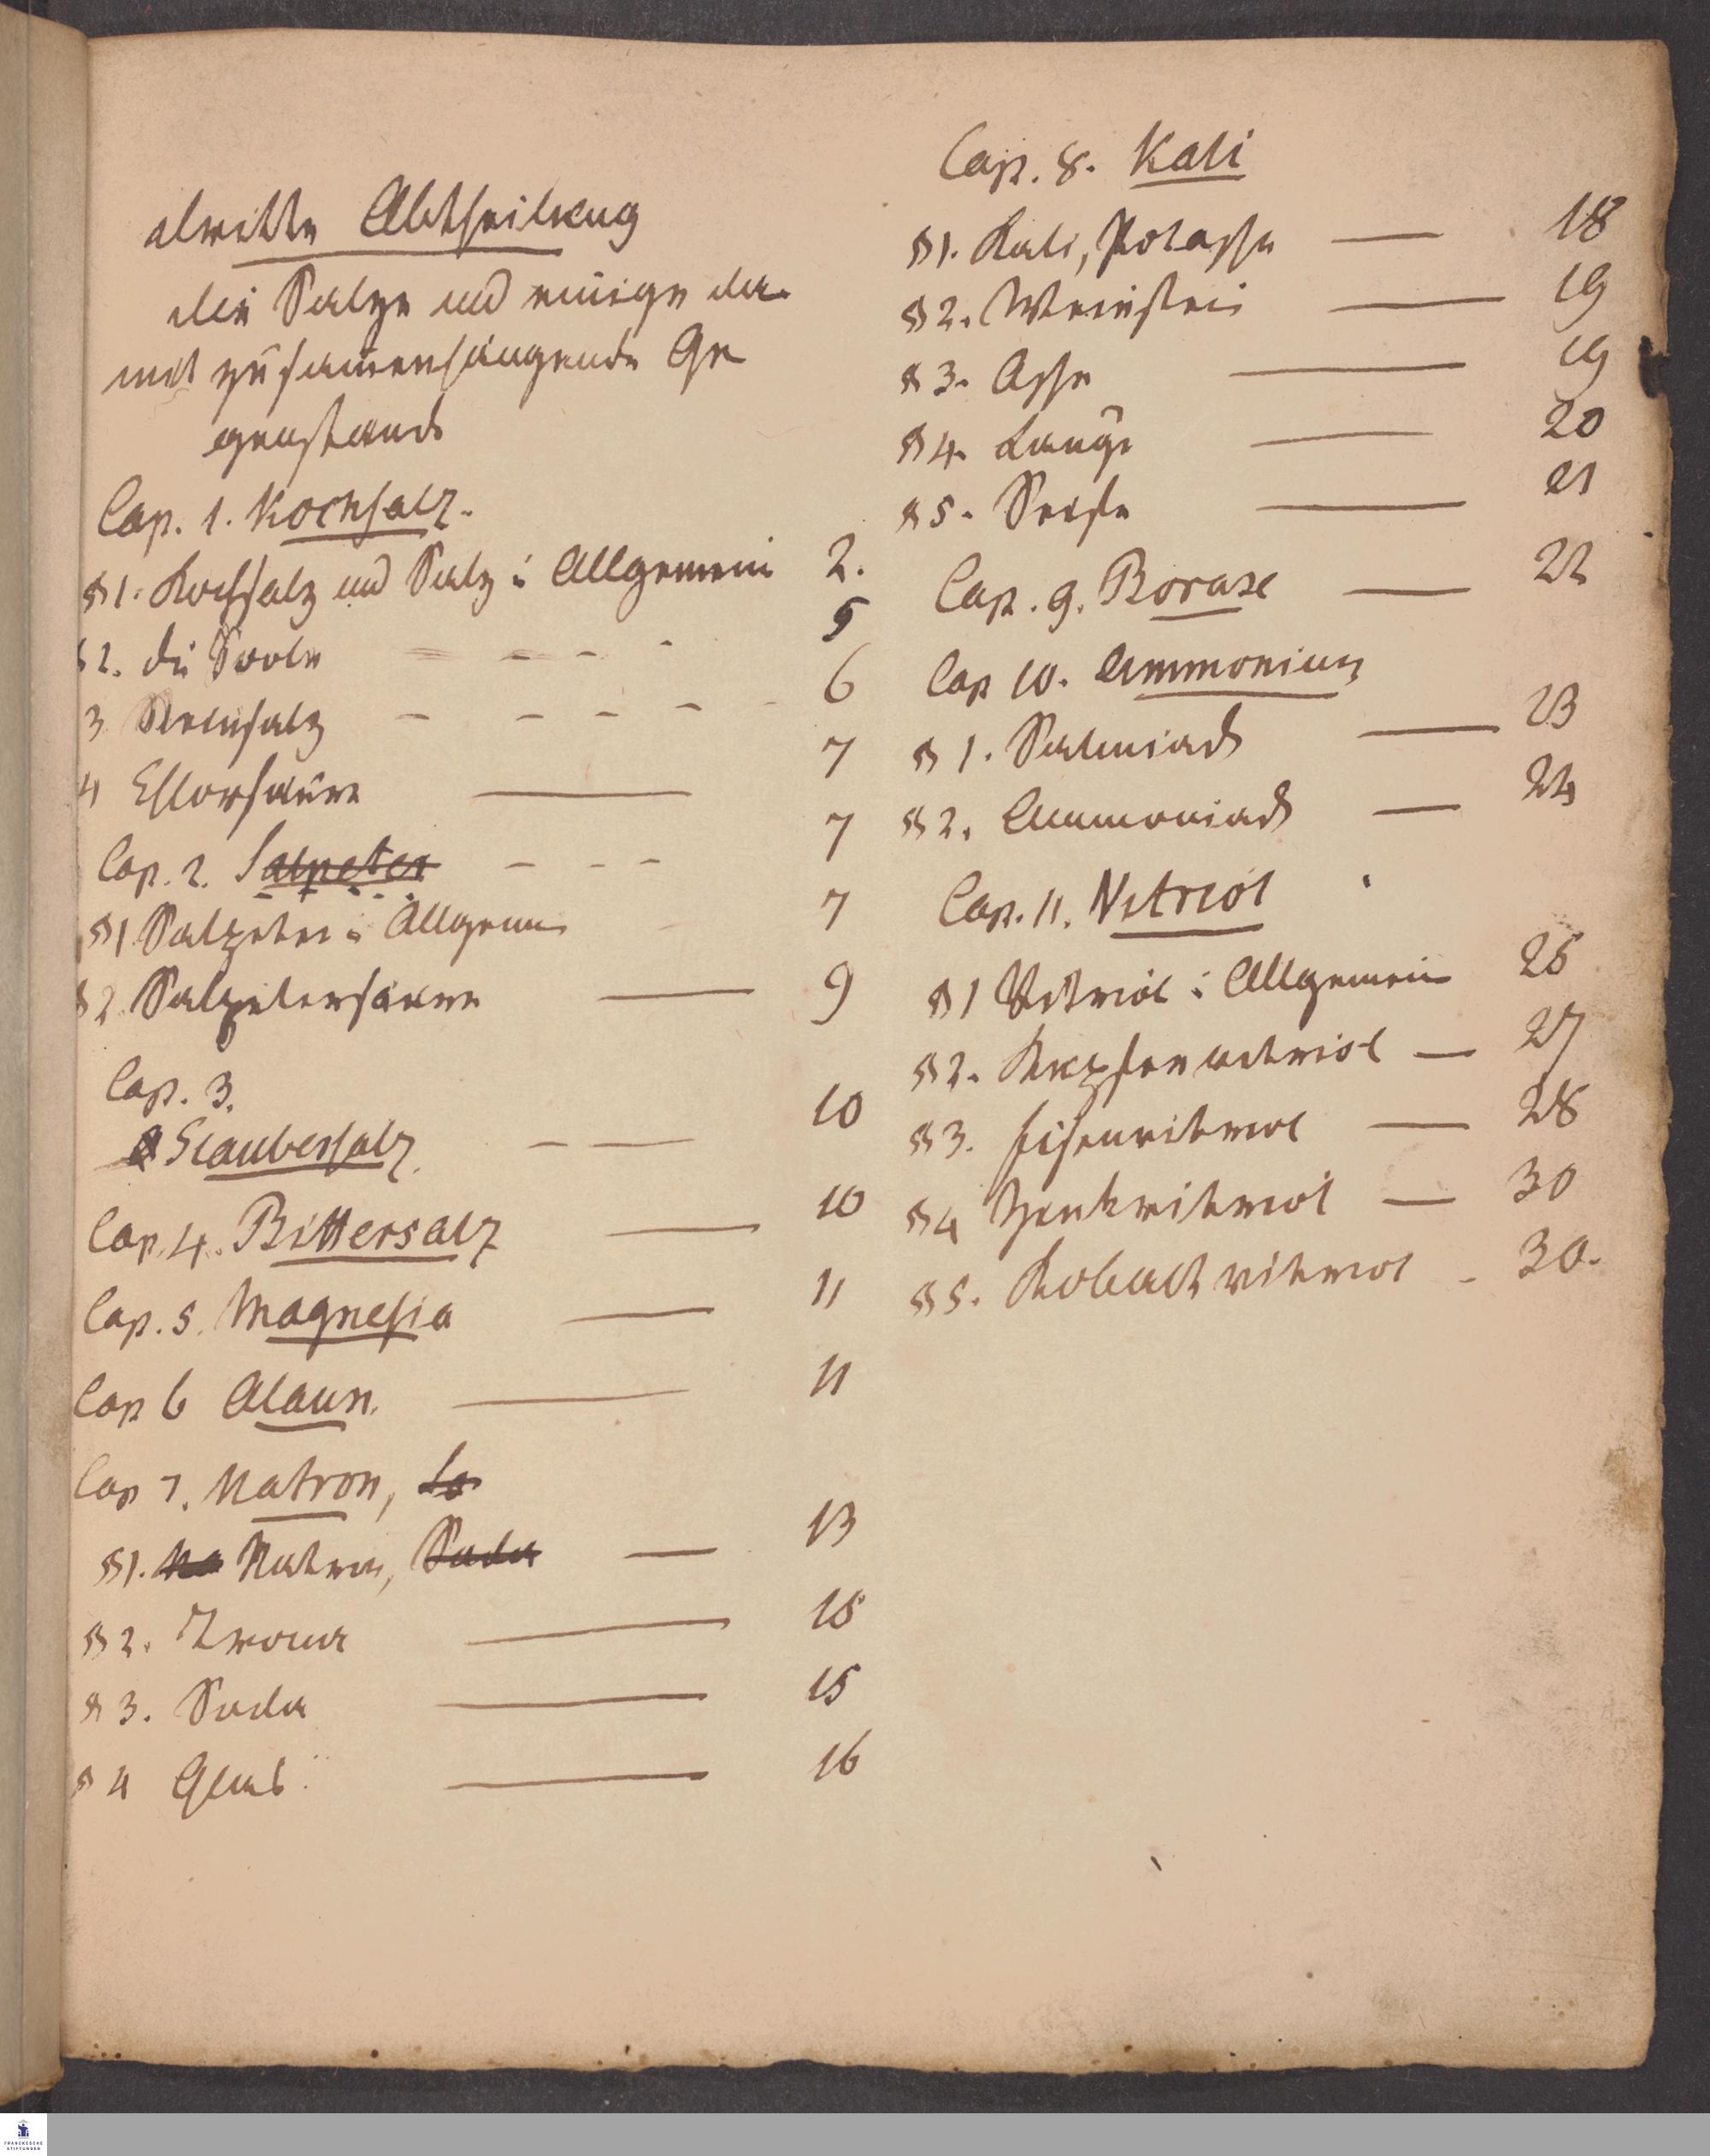 dritte Abtheilung
die Salze und einige da-
mit zusammenhängende Ge
genstände
Cap. 1. Kochsalz.
§ 1. Kochsalz und Salz i Allgemein 2.
§ 2. die Soole - - - 5
3 Steinsalz - - - - - 6
4 Chlorsäure — 7
Cap. 2. Salpeter - - - 7
§ 1 Salpeter i Allgemein - 7
§ 2 Salpetersäure — 9
Cap. 3.
Glaubersalz - — 10
Cap. 4. Bittersalz — 10
Cap. 5. Magnesia — 11
Cap 6 Alaun. — 11
Cap 7. Natron, So
§ 1. Na Natron, Soda — 13
§ 2. Trona — 15
§ 3. Soda — 15
§ 4 Glas — 16
Cap. 8. Kali
§ 1. Kali, Potasche — 18
§ 2. Weinstein — 19
§ 3. Asche — 19
§ 4. Lauge — 20
§ 5. Seife — 21
Cap. 9. Borax — 22
Cap 10. Ammonium
§ 1. Salmiack — 23
§ 2. Ammoniack — 24
Cap. 11. Vitriol
§ 1 Vitriol i Allgemein 25
§ 2. Kupfervitriol — 27
§ 3. Eisenvitriol — 28
§ 4 Zinkvitriol — 30
§ 5. Kobaltvitriol - 30.
FRANCKESCHE
STIFTUNGEN